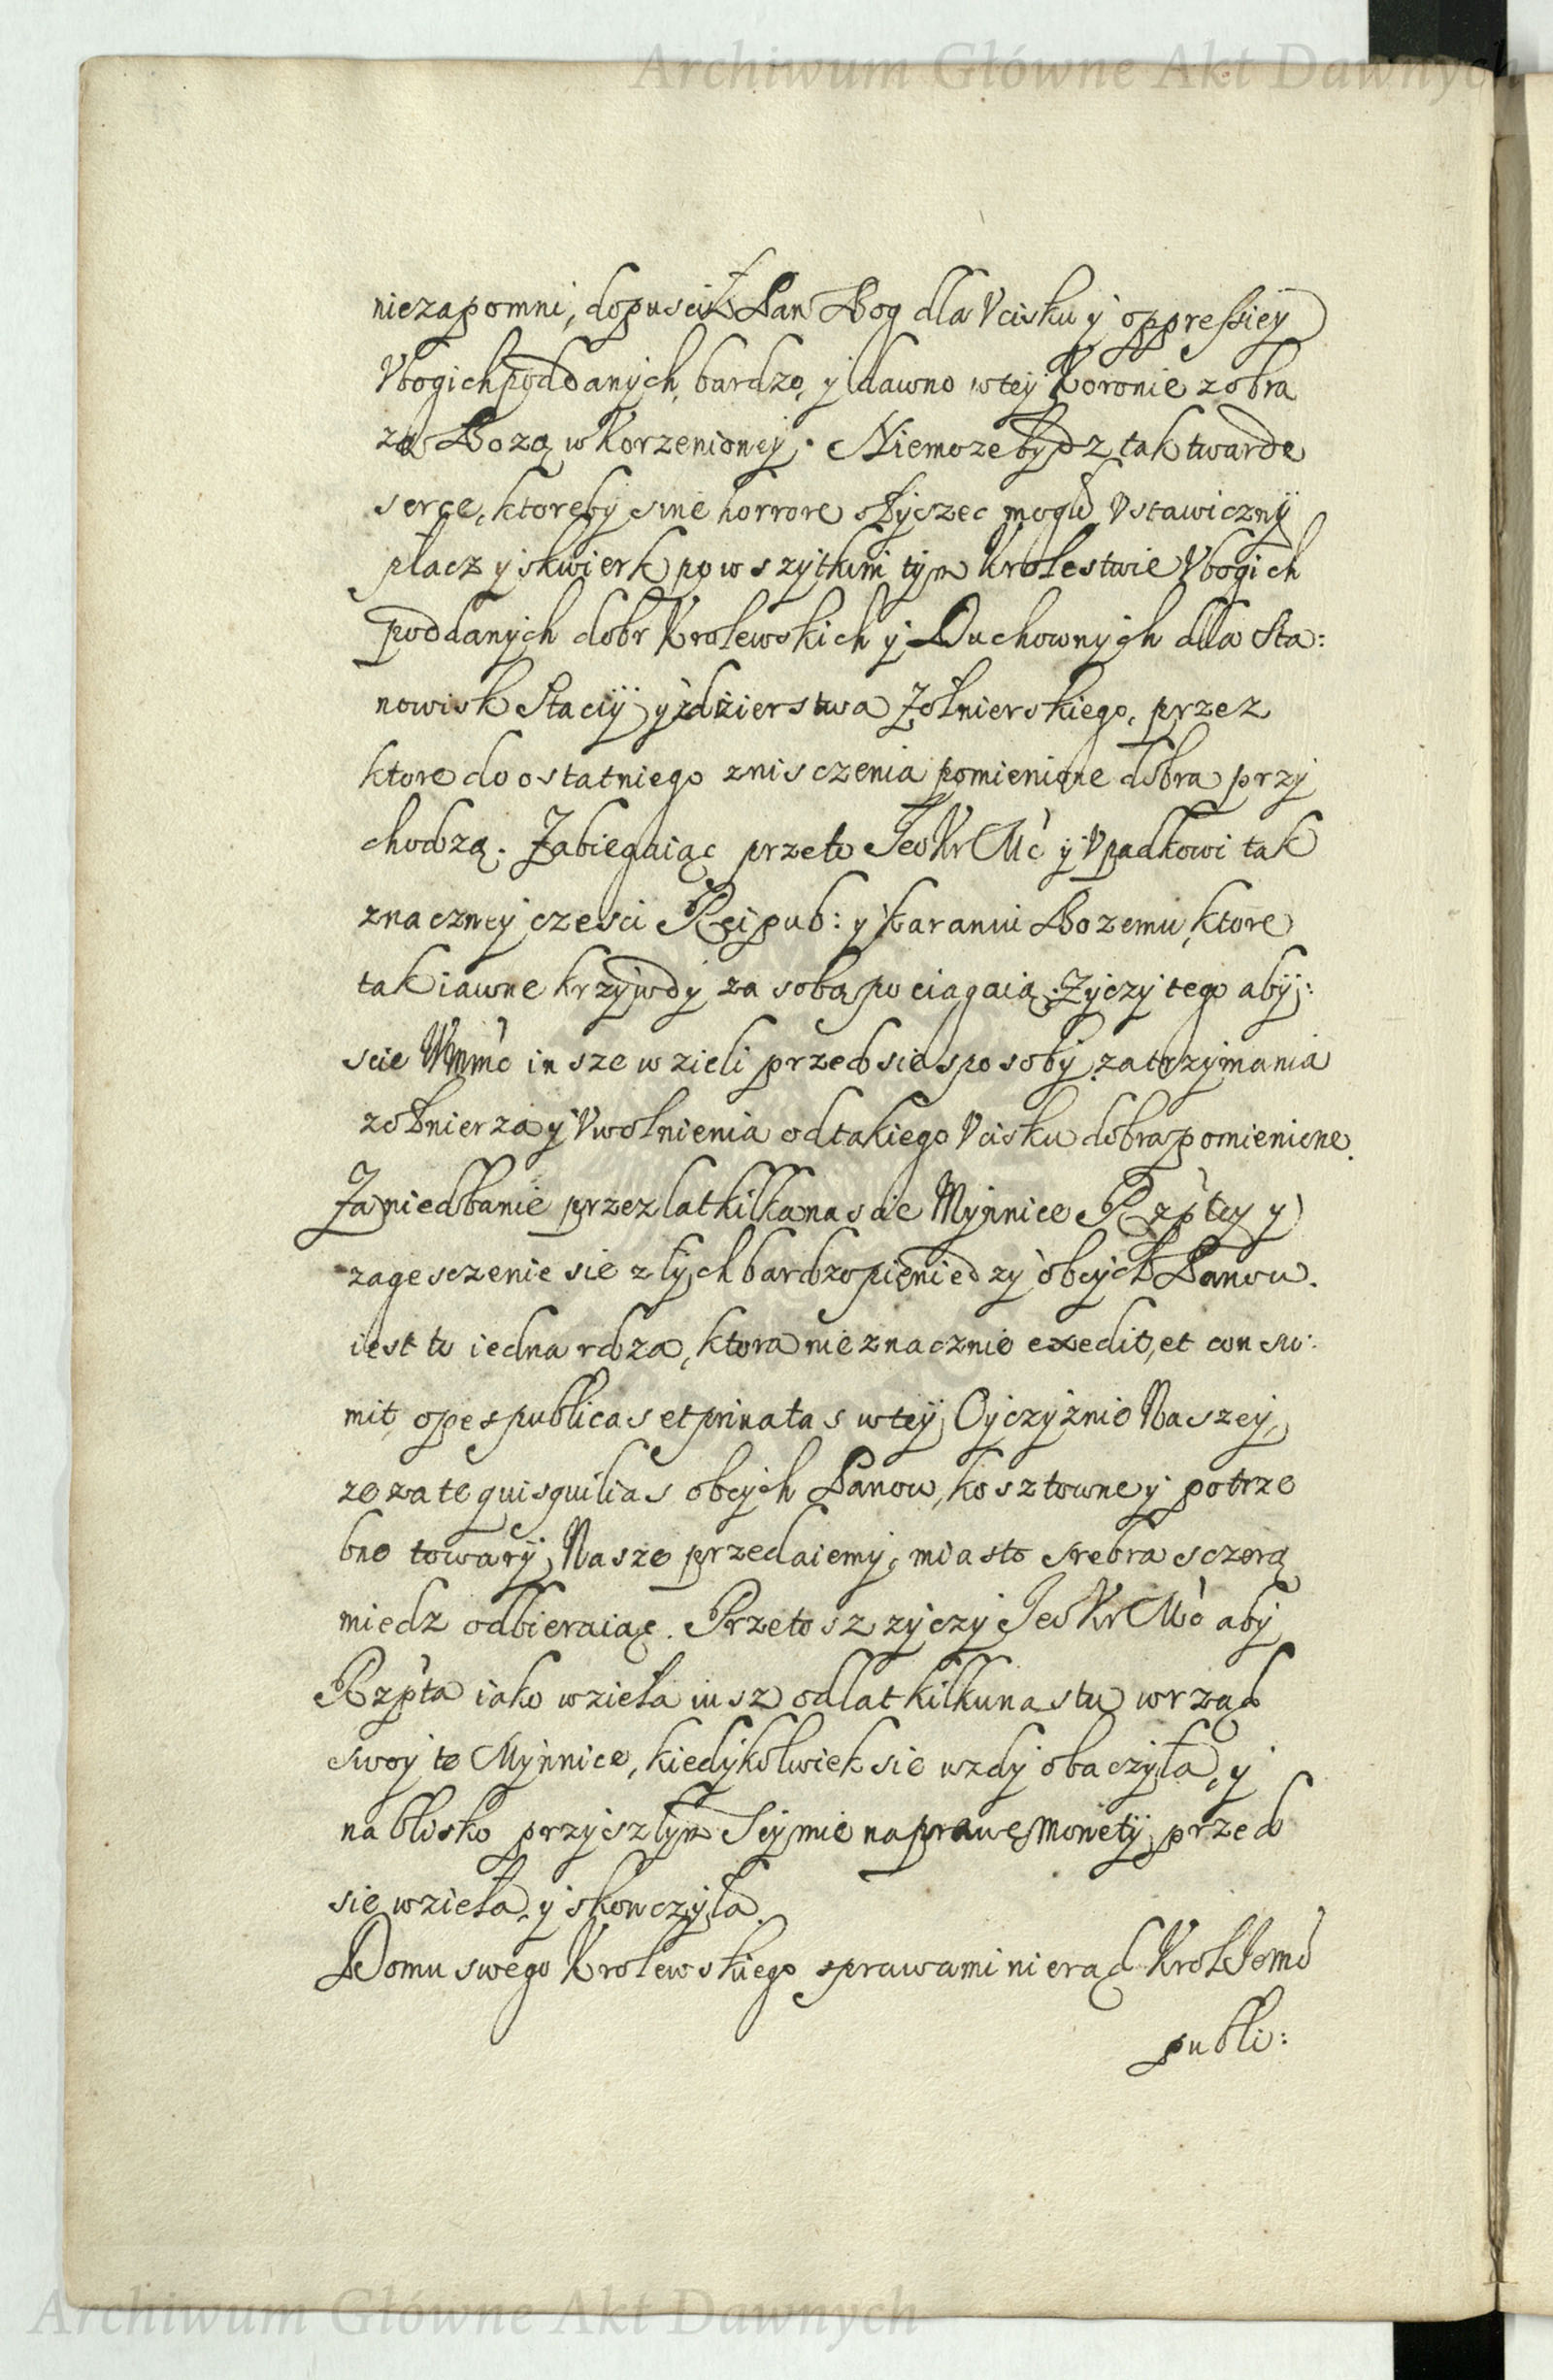 Archiwum Główne Akt Dawnych
niezapomni, dopuscił Pan Bog dla Vcisku y oppressiey
Vbogich poddanych, bardzo, y dawno wtey Koronie zobra
zą Bozą wkorzenioney. Niemoze bydz tak twarde
serce, ktoreby sine horrore słyszec mogło Vstawiczny
płacz y skwierk po wszytkim tym Krolestwie Vbogich
poddanych dobr Krolewskich y Duchownych dla Sta:
nowisk Staciy y zdzierstwa Zołnierskiego, przez
ktore do ostatniego znisczenia pomienione dobra przy
chodzą. Zabiegaiąc przeto Jeo Kr Mć y Vpadkowi tak
znaczney czesci Reipub: y karaniu Bozemu, ktore
tak iawne krzywdy za sobą pociągaią. Zyczy tego aby:
scie Wmmć insze wzieli przed sie sposoby zatrzymania
zołnierza y Vwolnienia od takiego Vcisku dobra pomienione.
Zaniedbanie przez lat kilkanascie Mynnice Rzptey y
zagesczenie sie złych bardzo pieniedzy obcych Panow.
iest to iedna rdza, ktora nieznacznie exedit, et consu:
mit, opes publicas et privatas wtey Oyczyznie Naszey,
ze za te quisquilias obcych Panow, kosztowne y potrze
bne towary Nasze przedaiemy, miasto srebra sczerą
miedz odbieraiąc. Przetosz zyczy Jeo Kr Mć aby
Rzpta iako wzieła iusz od lat kilkunastu w rząd
swoy te Mynnice, kiedykolwiek sie wzdy obaczyła, y
na blisko przyszłym Seymie naprawę Monety przed
sie wzieła y skonczyła.
Domu swego Krolewskiego sprawami nierad Krol Jemć
publi:
Archiwum Główne Akt Dawnych